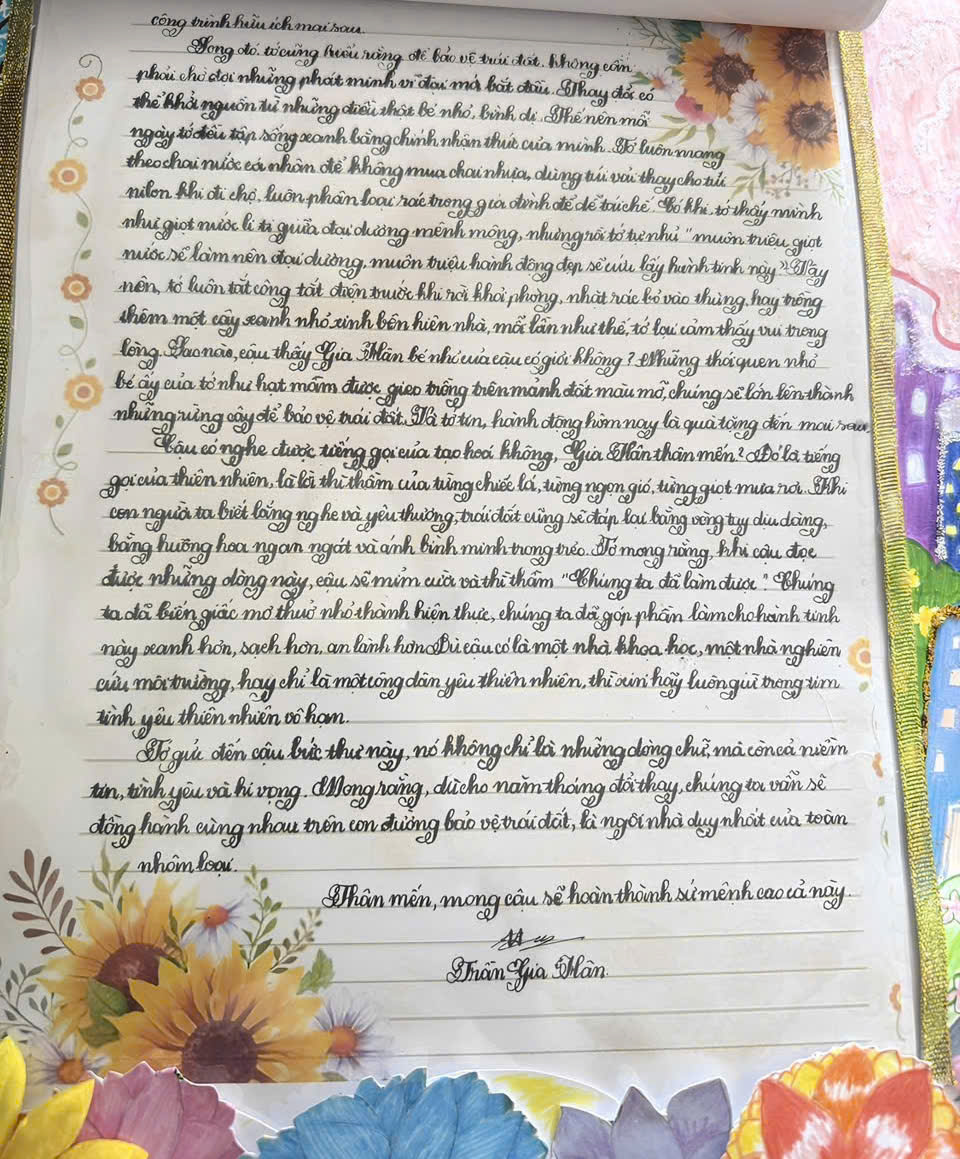 công trình hữu ích mai sau.
Song đó, tớ cũng hiểu rằng để bảo vệ trái đất, không cần
phải chờ đợi những phát minh vĩ đại mới bắt đầu. Thay đổi có
thể khởi nguồn từ những điều thật bé nhỏ, bình dị. Thế nên mỗi
ngày tớ đều tập sống xanh bằng chính nhận thức của mình. Tớ luôn mang
theo chai nước cá nhân để không mua chai nhựa, dùng túi vải thay cho túi
nilon khi đi chợ, luôn phân loại rác trong gia đình để dễ tái chế. Có khi, tớ thấy mình
như giọt nước li ti giữa đại dương mênh mông, nhưng rồi tớ tự nhủ "muôn triệu giọt
nước sẽ làm nên đại dương, muôn triệu hành động đẹp sẽ cứu lấy hành tinh này". Vậy
nên, tớ luôn tắt công tắt điện trước khi rời khỏi phòng, nhặt rác bỏ vào thùng, hay trồng
thêm một cây xanh nhỏ xinh bên hiên nhà, mỗi lần như thế, tớ lại cảm thấy vui trong
lòng. Sao nào, cậu thấy Gia Hân bé nhỏ của cậu có giỏi không? Những thói quen nhỏ
bé ấy của tớ như hạt mầm được gieo trồng trên mảnh đất màu mỡ, chúng sẽ lớn lên thành
những rừng cây để bảo vệ trái đất. Và tớ tin, hành động hôm nay là quà tặng đến mai sau.
Cậu có nghe được tiếng gọi của tạo hoá không, Gia Hân thân mến? Đó là tiếng
gọi của thiên nhiên, là lời thì thầm của từng chiếc lá, từng ngọn gió, từng giọt mưa rơi. Khi
con người ta biết lắng nghe và yêu thương, trái đất cũng sẽ đáp lại bằng vòng tay dịu dàng,
bằng hương hoa ngan ngát và ánh bình minh trong trẻo. Tớ mong rằng, khi cậu đọc
được những dòng này, cậu sẽ mỉm cười và thì thầm "Chúng ta đã làm được". Chúng
ta đã biến giấc mơ thuở nhỏ thành hiện thực, chúng ta đã góp phần làm cho hành tinh
này xanh hơn, sạch hơn, an lành hơn. Dù cậu có là một nhà khoa học, một nhà nghiên
cứu môi trường, hay chỉ là một công dân yêu thiên nhiên, thì xin hãy luôn giữ trong tim
tình yêu thiên nhiên vô hạn.
Tớ gửi đến cậu bức thư này, nó không chỉ là những dòng chữ, mà còn cả niềm
tin, tình yêu và hi vọng. Mong rằng, dù cho năm tháng đổi thay, chúng ta vẫn sẽ
đồng hành cùng nhau trên con đường bảo vệ trái đất, là ngôi nhà duy nhất của toàn
nhân loại.
Thân mến, mong cậu sẽ hoàn thành sứ mệnh cao cả này.
Trần Gia Hân